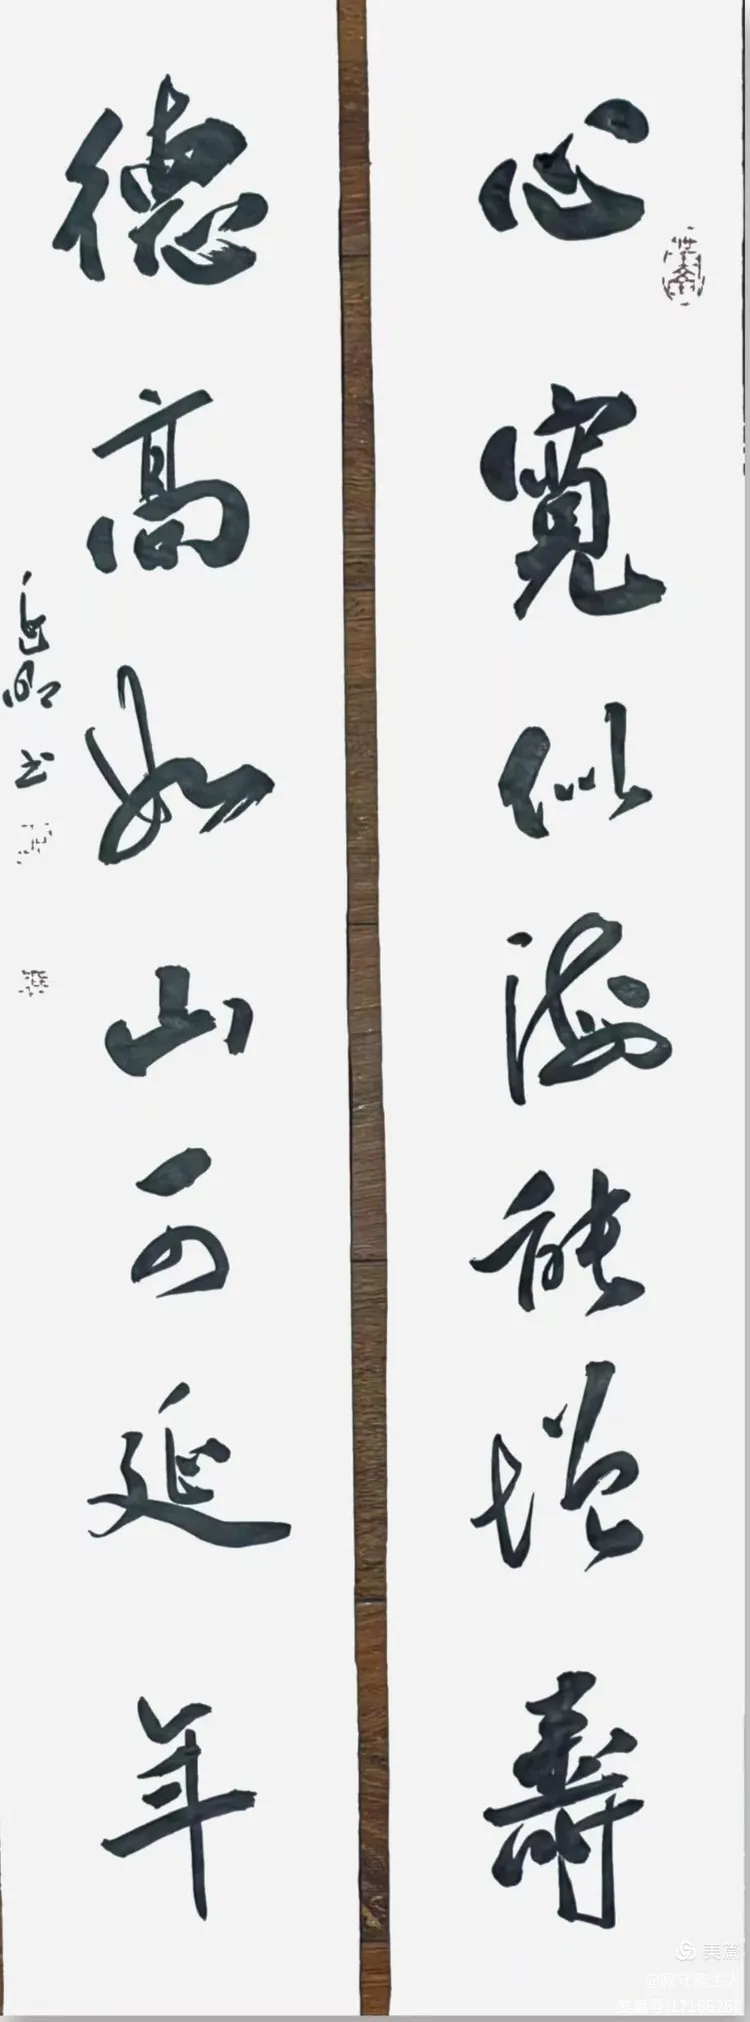 心寬似海能增壽
德高如山可延年
书
美篇